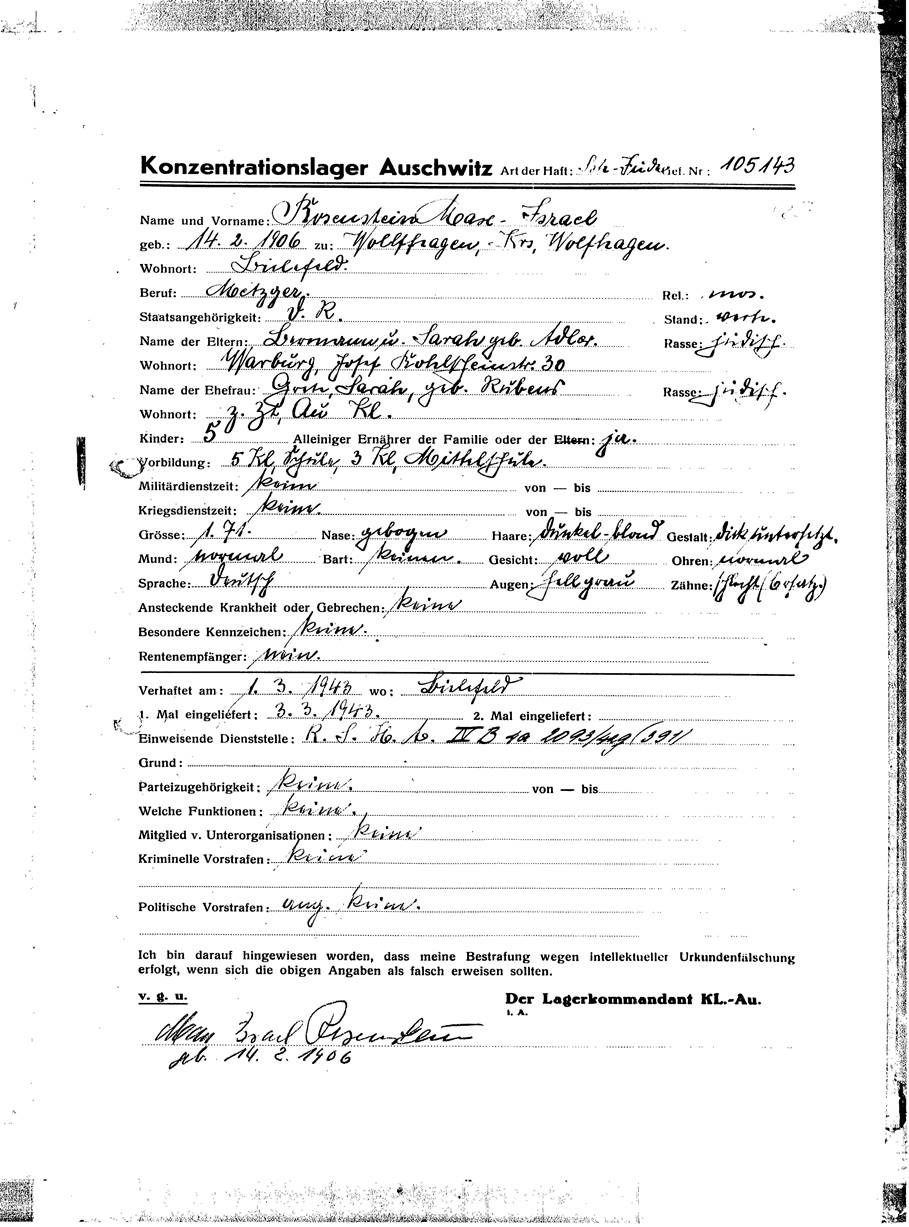 Konzentrationslager Auschwitz Art der Haft: Sch-Jude Gef. Nr: 105143
Name und Vorname: Rosenstein Max-Israel
geb.: 14. 2. 1906 zu: Wolffhagen, Krs, Wolfhagen.
Wohnort: Bielefeld.
Beruf: Metzger. Rel.: mos.
Staatsangehörigkeit: D. R. Stand: verh.
Name der Eltern: Hermann u. Sarah geb. Adler. Rasse: jüdisch.
Wohnort: Warburg, Josef Kohlscheinstr. 30
Name der Ehefrau: Grete, Sarah, geb. Rubens Rasse: jüdisch.
Wohnort: z. Zt, Au Kl.
Kinder: 5 Alleiniger Ernährer der Familie oder der Eltern: ja.
Vorbildung: 5 Kl, Schule, 3 Kl, Mittelschule.
Militärdienstzeit: keine von — bis
Kriegsdienstzeit: keine. von — bis
Grösse: 1.71. Nase: gebogen Haare: dunkel-blond Gestalt: dick untersetzt.
Mund: normal Bart: keinen. Gesicht: voll Ohren: normal
Sprache: deutsch Augen: hellgrau Zähne: schlecht (Ersatz.)
Ansteckende Krankheit oder Gebrechen: keine
Besondere Kennzeichen: keine.
Rentenempfänger: nein.
Verhaftet am: 1. 3. 1943 wo: Bielefeld
1. Mal eingeliefert: 3. 3. 1943. 2. Mal eingeliefert:
Einweisende Dienststelle: R. S. H. A. IV B 4a 2093/42g (391)
Grund:
Parteizugehörigkeit: keine. von — bis
Welche Funktionen: keine.
Mitglied v. Unterorganisationen: keine
Kriminelle Vorstrafen: keine
Politische Vorstrafen: ang. keine.
Ich bin darauf hingewiesen worden, dass meine Bestrafung wegen intellektueller Urkundenfälschung
erfolgt, wenn sich die obigen Angaben als falsch erweisen sollten.
v. g. u. Der Lagerkommandant KL.-Au.
i. A.
Max Israel Rosenstein
geb. 14. 2. 1906